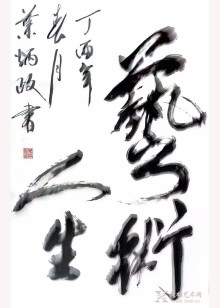 藝術
人生
丁酉年
春月
葉炳政書